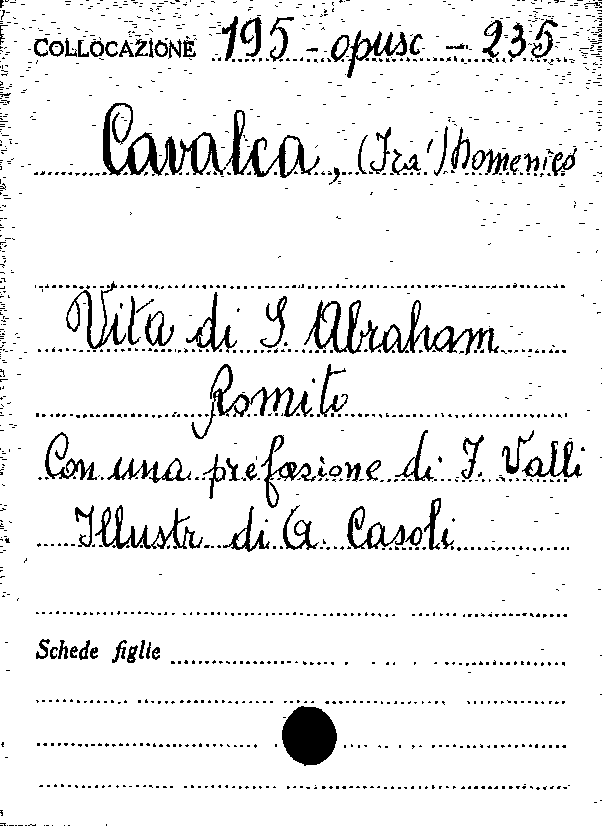 COLLOCAZIONE 195 - opusc - 235
Cavalca, (Fra') Domenico
Vita di S. Abraham
Romito
Con una prefasione di F. Valli
Illustr. di G. Casoli
Schede figlie